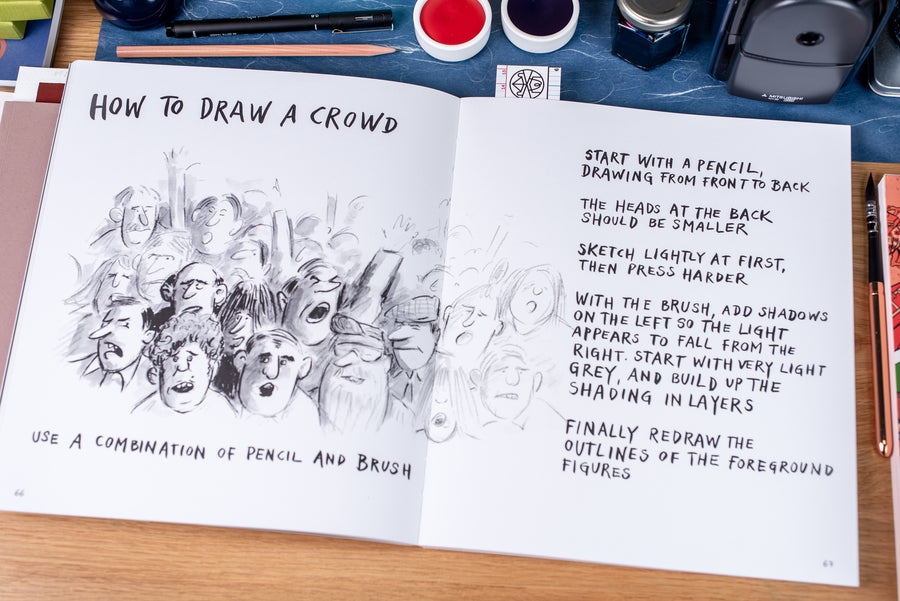 HOW TO DRAW A CROWD
USE A COMBINATION OF PENCIL AND BRUSH
66
START WITH A PENCIL,
DRAWING FROM FRONT TO BACK
THE HEADS AT THE BACK
SHOULD BE SMALLER
SKETCH LIGHTLY AT FIRST,
THEN PRESS HARDER
WITH THE BRUSH, ADD SHADOWS
ON THE LEFT SO THE LIGHT
APPEARS TO FALL FROM THE
RIGHT. START WITH VERY LIGHT
GREY, AND BUILD UP THE
SHADING IN LAYERS
FINALLY REDRAW THE
OUTLINES OF THE FOREGROUND
FIGURES
67
MITSUBISHI